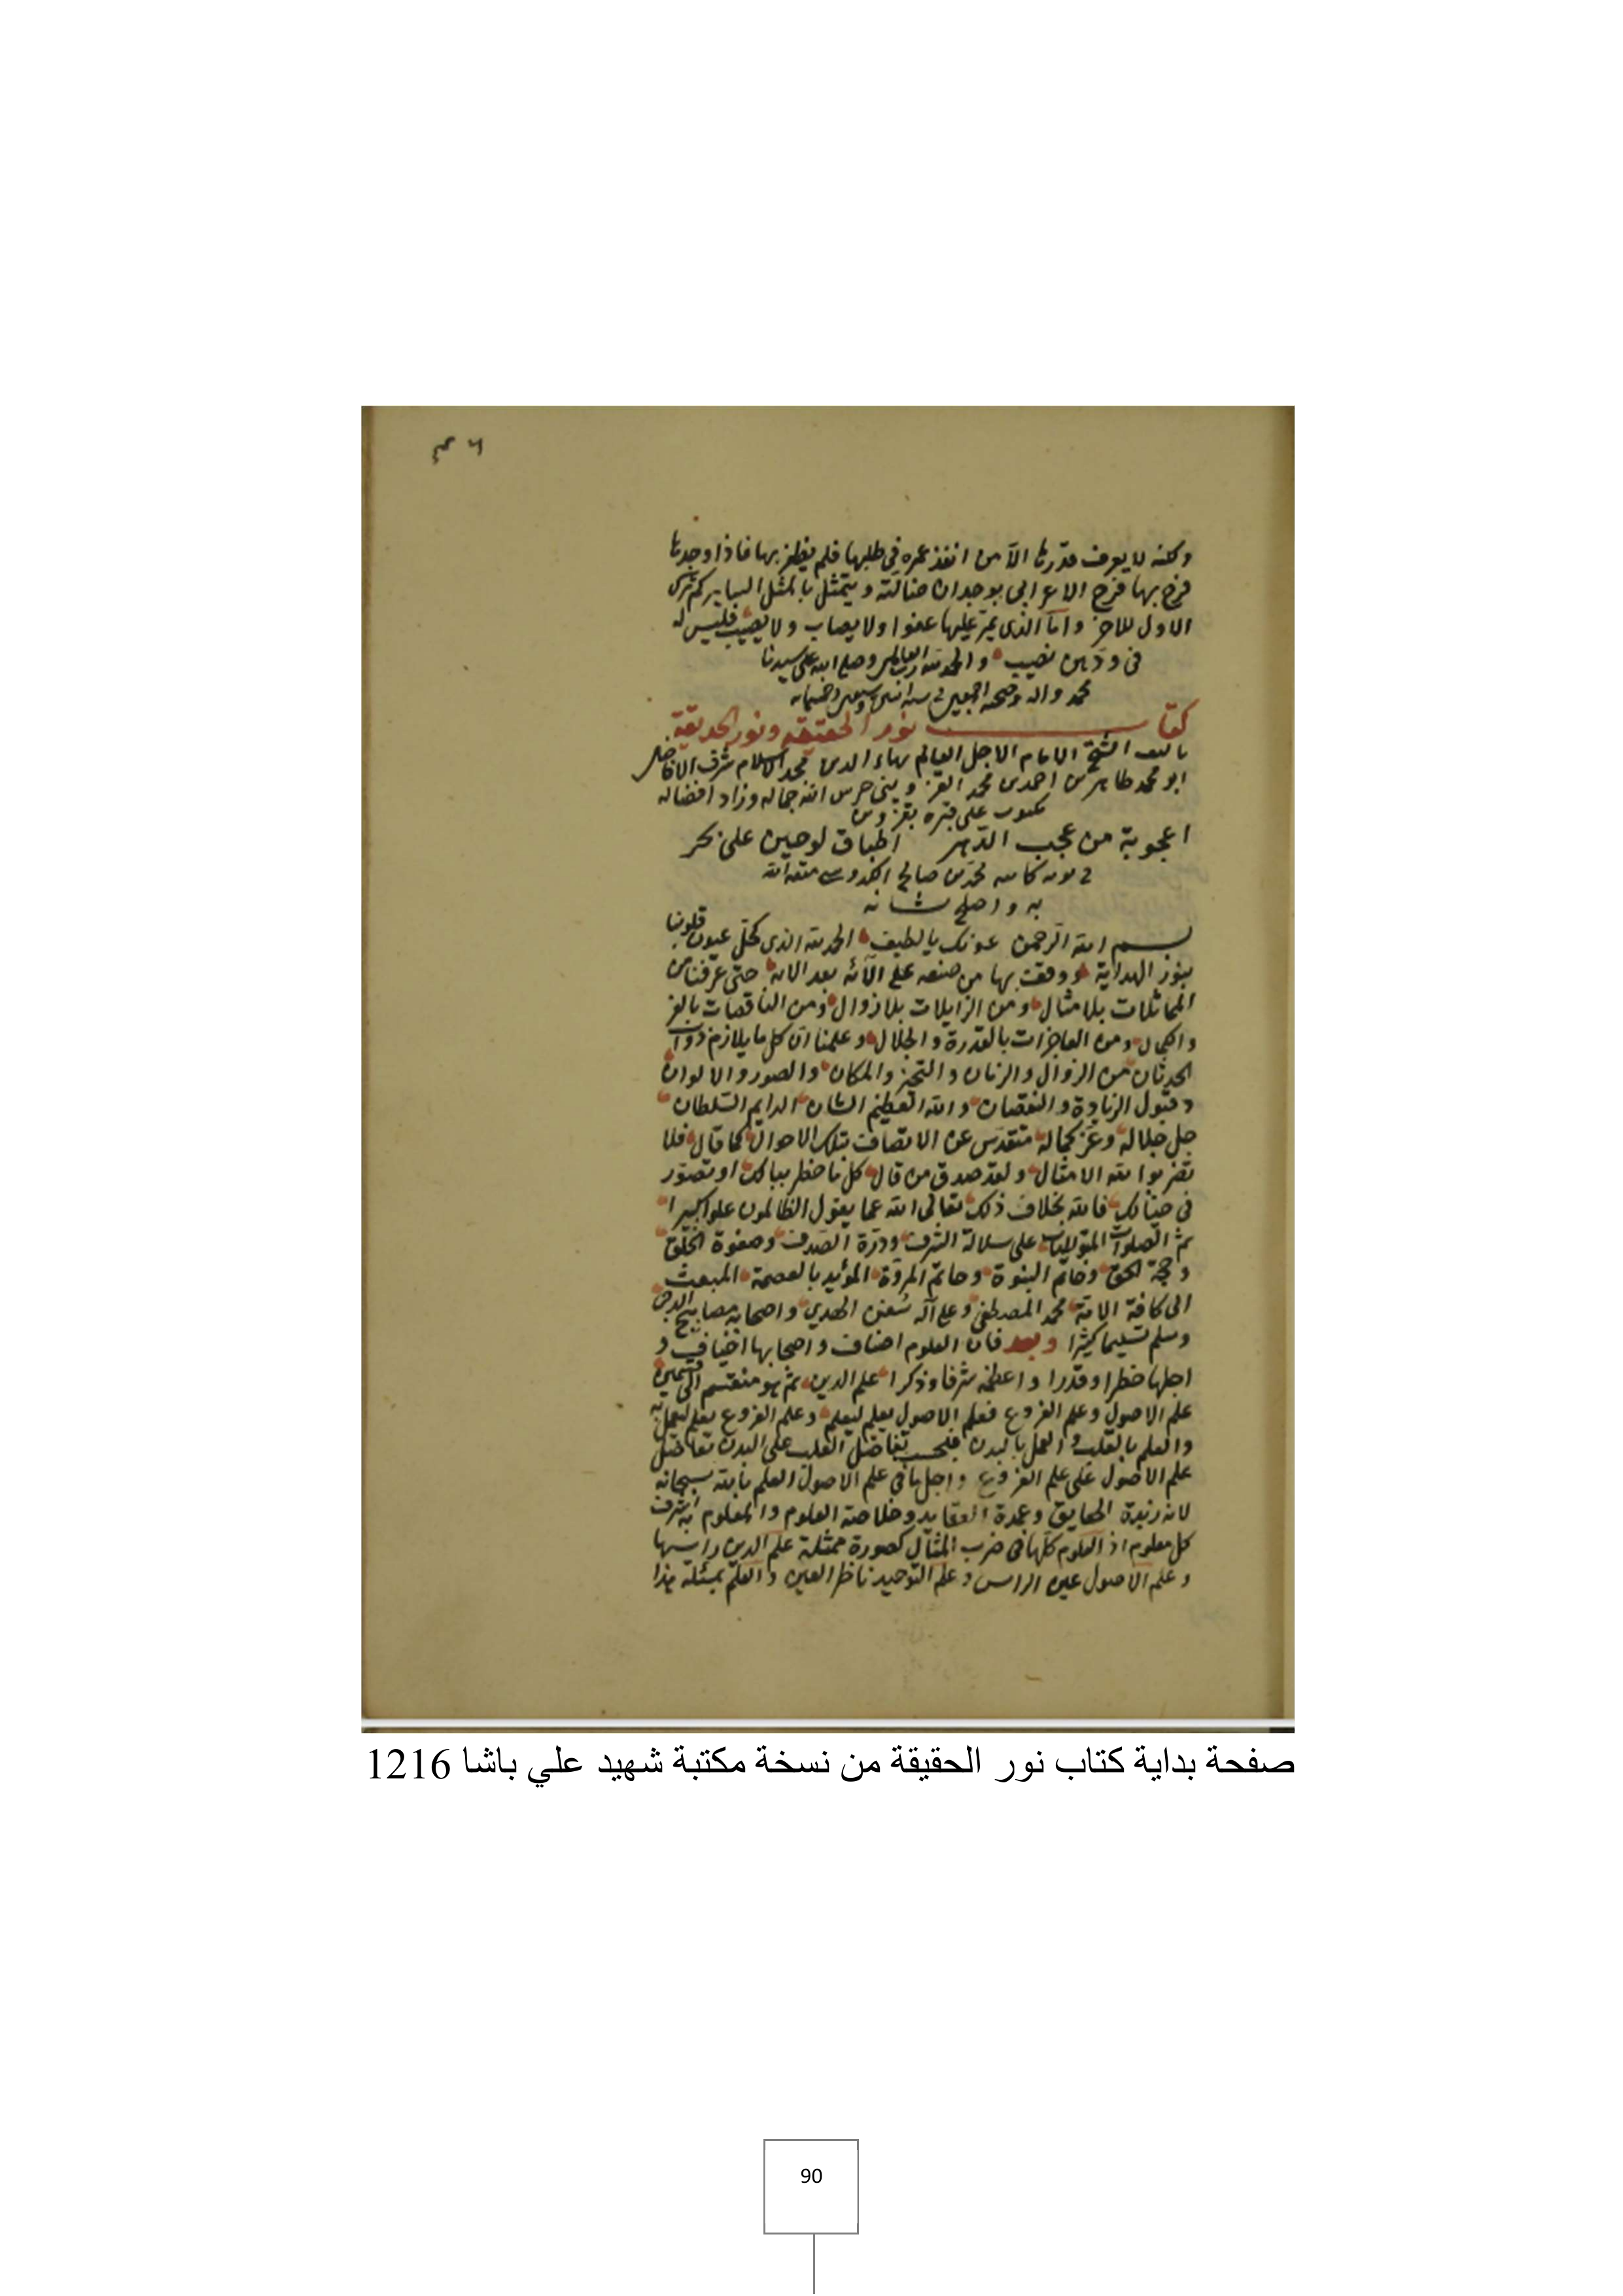 ولكنه لا يعرف قدرها الا من انفذ عمره في طلبها فلم يظفر بها فاذا وجدها
فرح بها فرح الاعرابي بوجدان ضالته ويتمثل بالمثل الساير كم ترك
الاول للاخر واما الذي يمر عليها عفوا ولا يصاب ولا يصيب فليس له
في ودّ من نصيب والحمد لله رب العالمين وصلى الله على سيدنا
محمد واله وصحبه اجمعين
كتاب نور الحقيقة ونور الحديقة
تاليف الشيخ الامام الاجل العالم بهاء الدين مجد الاسلام شرف الافاضل
ابو محمد طاهر بن احمد بن محمد القزويني حرس الله جماله وزاد افضاله
مكتوب على قبره بقزوين
اعجوبة من عجب الدهر اطباق لوحين على بحر
محمد بن صالح متعه الله
به واصلح شانه
بسم الله الرحمن عونك يا لطيف الحمد لله الذي كحل عيون قلوبنا
بنور الهداية ووقفت بها من صنعه على آلائه بعد الاية حتى عرفنا من
المماثلات بلا مثال ومن الزايلات بلا زوال ومن الناقصات بالعز
والكمال ومن العاجزات بالقدرة والجلال وعلمنا ان كل ما يلازم ذوات
الحدثان من الزوال والزمان والتحيز والمكان والصور والالوان
وقبول الزيادة والنقصان والله العظيم الشان الدايم السلطان
جل جلاله وعز كماله متقدس عن الاتصاف بتلك الاحوال كما قال فلا
تضربوا لله الامثال ولقد صدق من قال كل ما خطر ببالك او تصور
في خيالك فالله بخلاف ذلك تعالى الله عما يقول الظالمون علوا كبيرا
ثم الصلوات المتواليات على سلالة الشرف ودرة الصدف وصفوة الخلق
وحجة الحق وخاتم النبوة وحاتم المروة المؤيد بالعصمة المبعث
الى كافة الامة محمد المصطفى وعلى آله سفن الهدى واصحابه مصابيح الدجى
وسلم تسليما كثيرا وبعد فان العلوم اصناف واصحابها اخياف و
اجلها خطرا وقدرا واعظمه شرفا وذكرا علم الدين ثم هو منقسم الى قسمين
علم الاصول وعلم الفروع فعلم الاصول يعلم ليعلم وعلم الفروع يعلم ليعمل به
والعلم بالقلب والعمل بالبدن فبحسب تفاضل القلب على البدن تفاضل
علم الاصول على علم الفروع واجل ما في علم الاصول العلم بالله سبحانه
لانه زبدة الحقايق وعمدة العقايد وخلاصة العلوم والمعلوم به اشرف
كل معلوم اذ العلوم كلها في ضرب المثال كصورة ممثلة علم الدين راسها
وعلم الاصول عين الراس وعلم التوحيد ناظر العين والعلم بمسئلة هذا
صفحة بداية كتاب نور الحقيقة من نسخة مكتبة شهيد علي باشا 1216
90